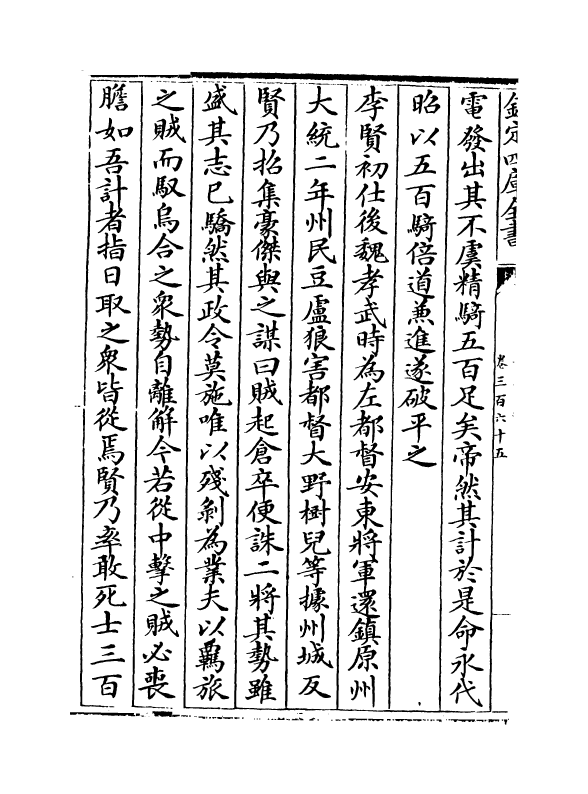 欽定四庫全書
卷三百六十五
電發出其不虞精騎五百足矣帝然其計於是命永代
昭以五百騎倍道兼進遂破平之
李賢初仕後魏孝武時為左都督安東將軍還鎮原州
大統二年州民豆盧狼害都督大野樹兒等據州城反
賢乃招集豪傑與之謀曰賊起倉卒便誅二將其勢雖
盛其志已驕然其政令莫施唯以殘剝為業夫以羈旅
之賊而馭烏合之衆勢自離解今若從中擊之賊必喪
膽如吾計者指日取之衆皆從焉賢乃率敢死士三百